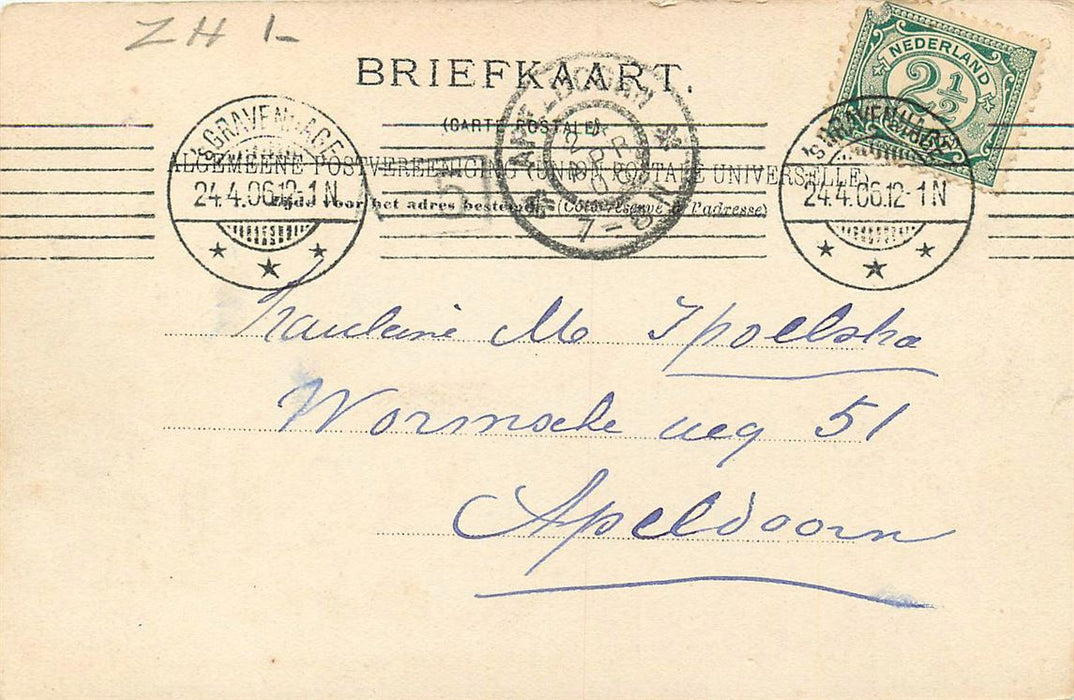 ZH 1-
BRIEFKAART.
(CARTE POSTALE)
ALGEMEENE POSTVEREENIGING (UNION POSTALE UNIVERSELLE)
Zijde voor het adres bestemd. (Côté réservé à l'adresse)
NEDERLAND
2½
'S GRAVENHAGE
24.4.06.12-1N
APELDOORN
24 APR 06
7-8N
5
'S GRAVENHAGE
24.4.06.12-1N
M
Wormsche weg 51
Apeldoorn